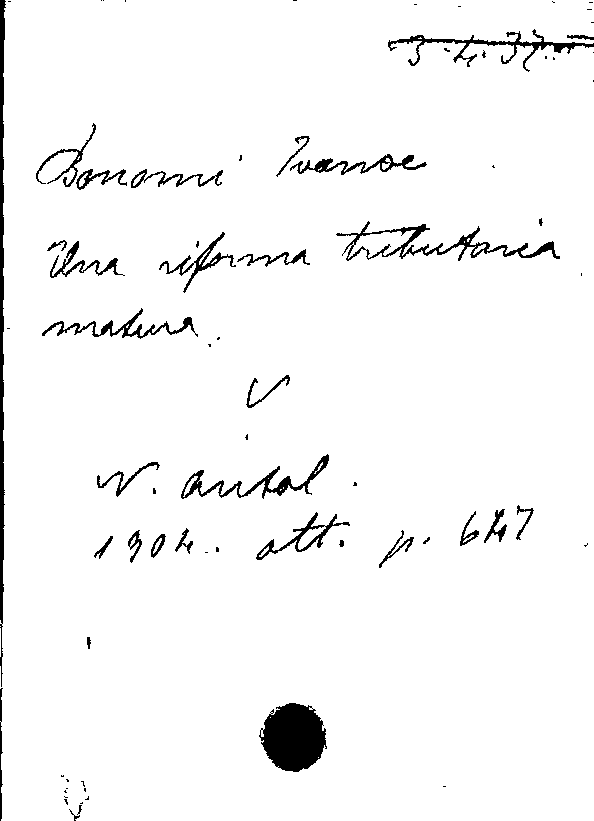 3-4-37
Bonomi Ivanoe
Una riforma tributaria
matura.
V
N. antol.
1904. ott. p. 647